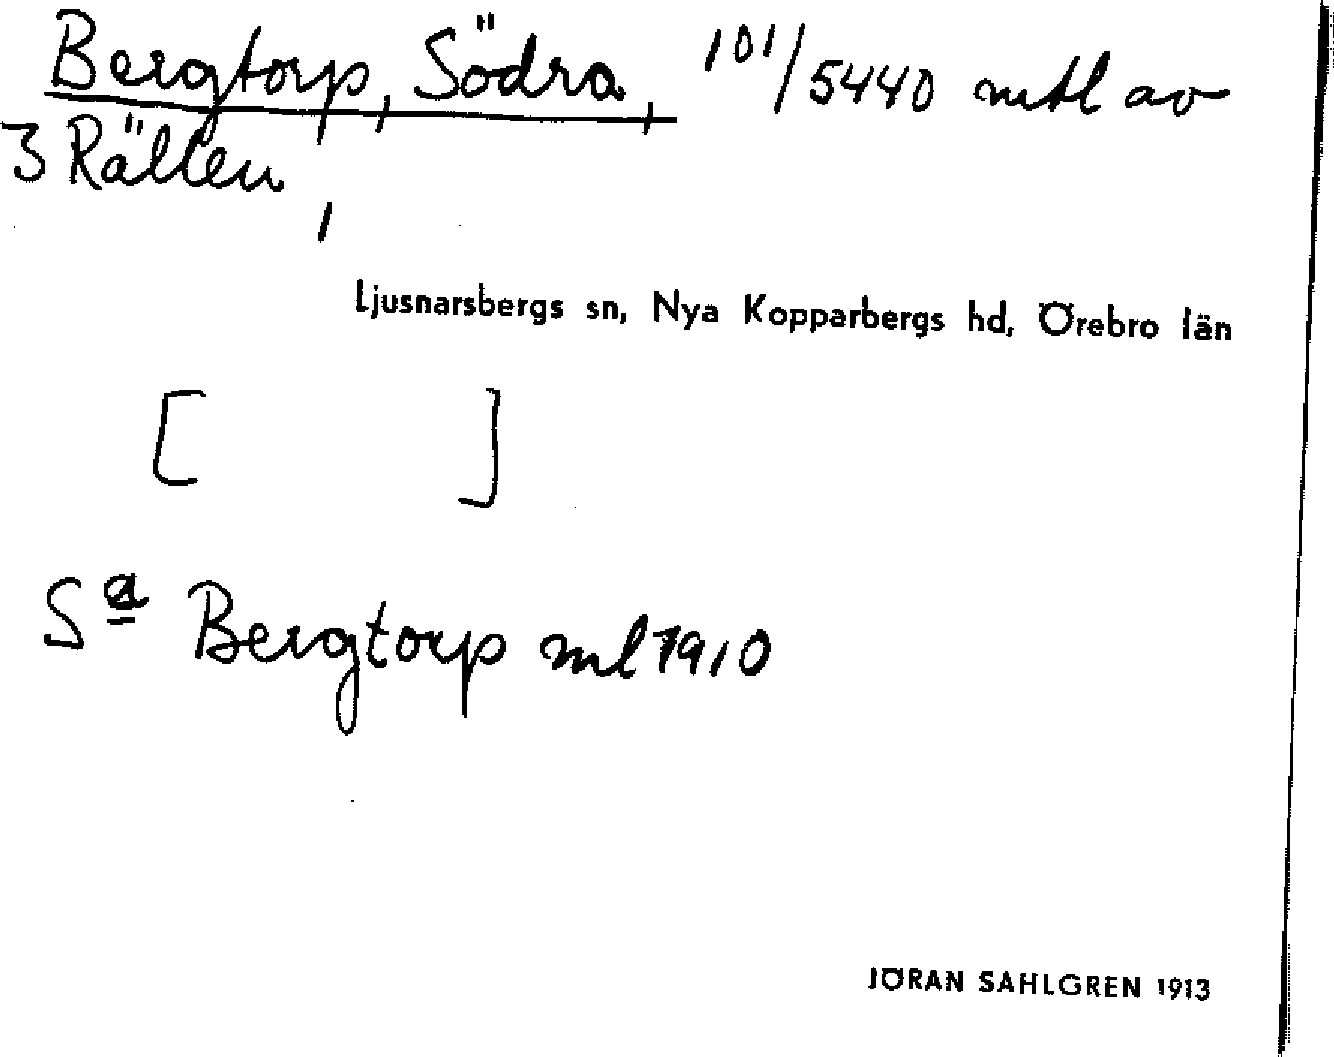 Bergtorp, Södra, 101/5440 mtl av
3 Rällen,
Ljusnarsbergs sn, Nya Kopparbergs hd, Örebro län
[ ]
Sa Bergtorp ml 1910
JÖRAN SAHLGREN 1913